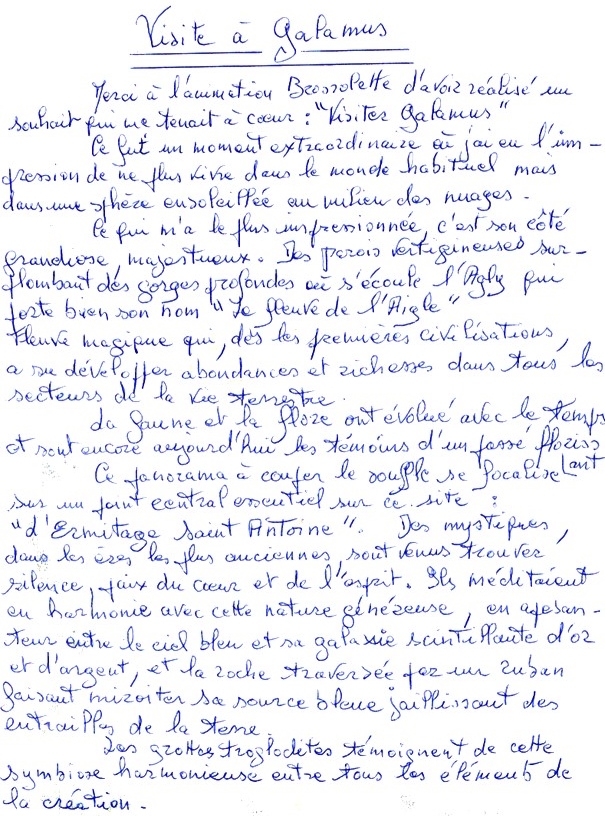 Visite à Galamus
Merci à l'animation Brossolette d'avoir réalisé un
souhait qui me tenait à cœur : "Visiter Galamus"
Ce fut un moment extraordinaire où j'ai eu l'im-
pression de ne plus vivre dans le monde habituel mais
dans une sphère ensoleillée au milieu des nuages.
Ce qui m'a le plus impressionnée, c'est son côté
grandiose, majestueux. Des parois vertigineuses sur-
plombant des gorges profondes où s'écoule l'Agly qui
porte bien son nom "Le fleuve de l'Aigle"
Fleuve magique qui, dès les premières civilisations,
a su développer abondances et richesses dans tous les
secteurs de la vie terrestre.
La faune et la flore ont évolué avec le temps
et sont encore aujourd'hui les témoins d'un passé floriss
ant
Ce panorama à couper le souffle se focalise
sur un point central essentiel sur ce site :
"L'Ermitage Saint Antoine". Des mystiques,
dans les ères les plus anciennes, sont venus trouver
silence, paix du cœur et de l'esprit. Ils méditaient
en harmonie avec cette nature généreuse, en apesan-
teur entre le ciel bleu et sa galaxie scintillante d'or
et d'argent, et la roche traversée par un ruban
faisant miroiter sa source bleue jaillissant des
entrailles de la terre.
Les grottes troglodites témoignent de cette
symbiose harmonieuse entre tous les éléments de
la création.